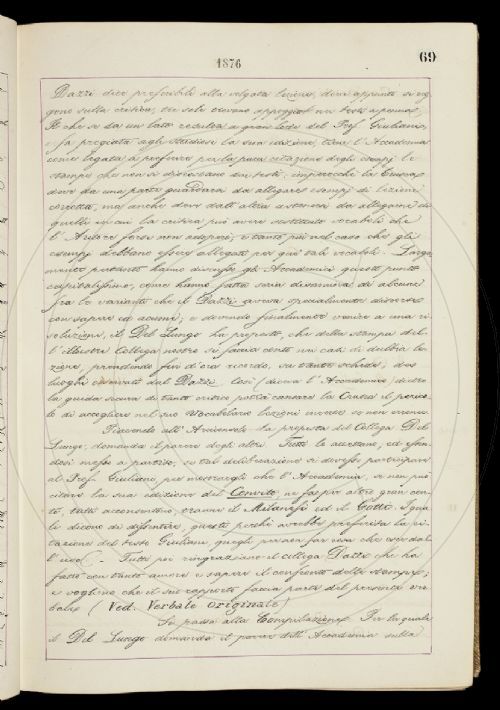 1876
69
Razzi dice preferibili alla volgata lezione, dieci appunto si reg
gono sulla critica, tre soli trovano appoggio nei testi a penna.
Il che se da un lato resulta a gran lode del Prof. Giuliani,
e fa pregiata agli studiosi la sua edizione, tiene l'Accademia
come legata a preferire per la pura citazione degli esempi le
stampe che non si discostano dai testi; imperocchè la Crusca
deve da una parte guardarsi da allegare esempi di lezione
corrotta, ma anche deve dall'altra astenersi da allegarne di
quelli in cui la critica può avere sostituito vocaboli che
l'Autore forse non adoperò; e tanto più nel caso che gli
esempi debbano essere allegati per quei tali vocaboli. Larga
mente pertanto hanno discusso gli Accademici questo punto
capitalissimo, come hanno fatta seria disamina di alcune
fra le varianti che il Dazzi aveva specialmente discusse
con sapere ed acume; e dovendo finalmente venire a una ri
soluzione, il Del Lungo ha proposto, che della stampa del
l'illustre Collega nostro si faccia conto nei casi di dubbia le
zione, prendendo fin d'ora ricordo, su tante schede, dei
luoghi esaminati dal Dazzi. Così (diceva l'Accademico) dietro
la guida sicura di tanto critico potrà cansare la Crusca il perico
lo di accogliere nel suo Vocabolario lezioni incerte se non erronee.
Piacendo all'Arciconsolo la proposta del Collega Del
Lungo, domanda il parere degli altri. Tutti la accettano, ed essen
dosi messo a partito, se tal deliberazione si dovesse partecipare
al Prof. Giuliani, per mostrargli che l'Accademia, se non può
citare la sua edizione del Convito, ne fa però altro gran con
to, tutti acconsentono, tranne il Milanesi ed il Gotti, i qua
li dicono di dissentire, questi perchè avrebbe preferita la ci
tazione del testo Giuliani, quegli per non far cosa che esca dal
l'uso. - Tutti poi ringraziano il collega Dazzi che ha
fatto con tanto amore e sapere il confronto delle stampe;
e vogliono che il suo rapporto faccia parte del presente ver
bale (Ved. Verbale originale)
Si passa alla Compilazione. Per la quale
il Del Lungo domanda il parere dell'Accademia sulla